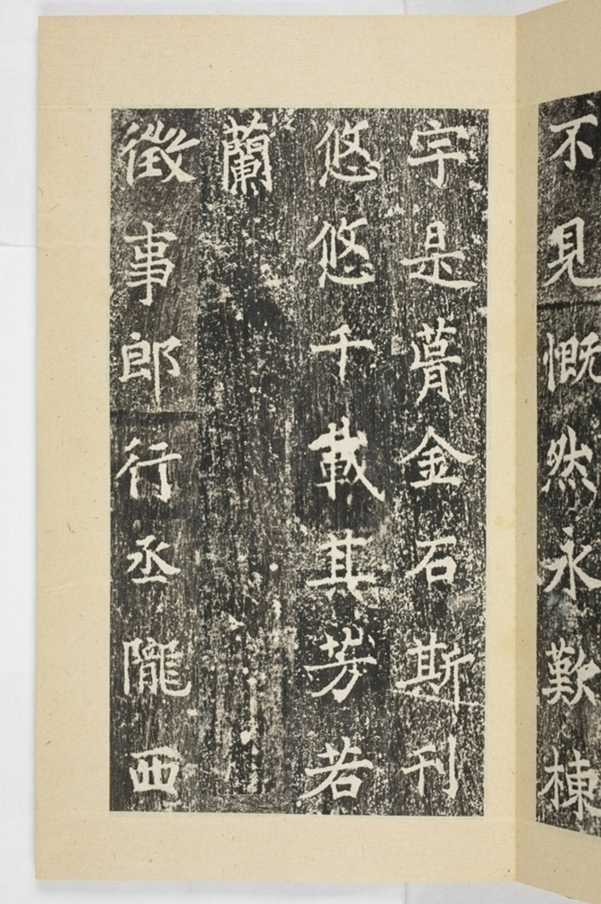 不見慨然永歎棟
宇是金石斯刊
悠悠千載其芳若
蘭
徵事郎行丞隴西